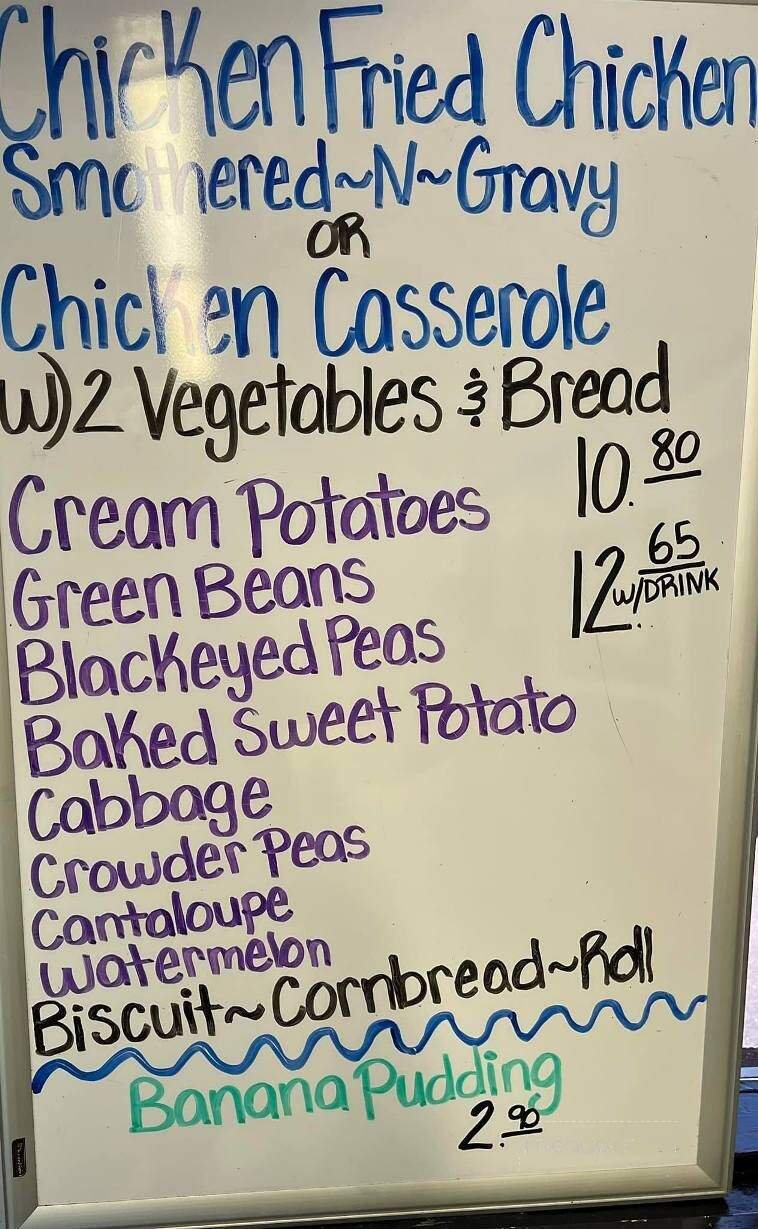 Chicken Fried Chicken
Smothered~N~Gravy
OR
Chicken Casserole
W)2 Vegetables & Bread
10.80
Cream Potatoes
12.65
W/DRINK
Green Beans
Blackeyed Peas
Baked Sweet Potato
Cabbage
Crowder Peas
Cantaloupe
Watermelon
Biscuit~Cornbread~Roll
Banana Pudding
2.90